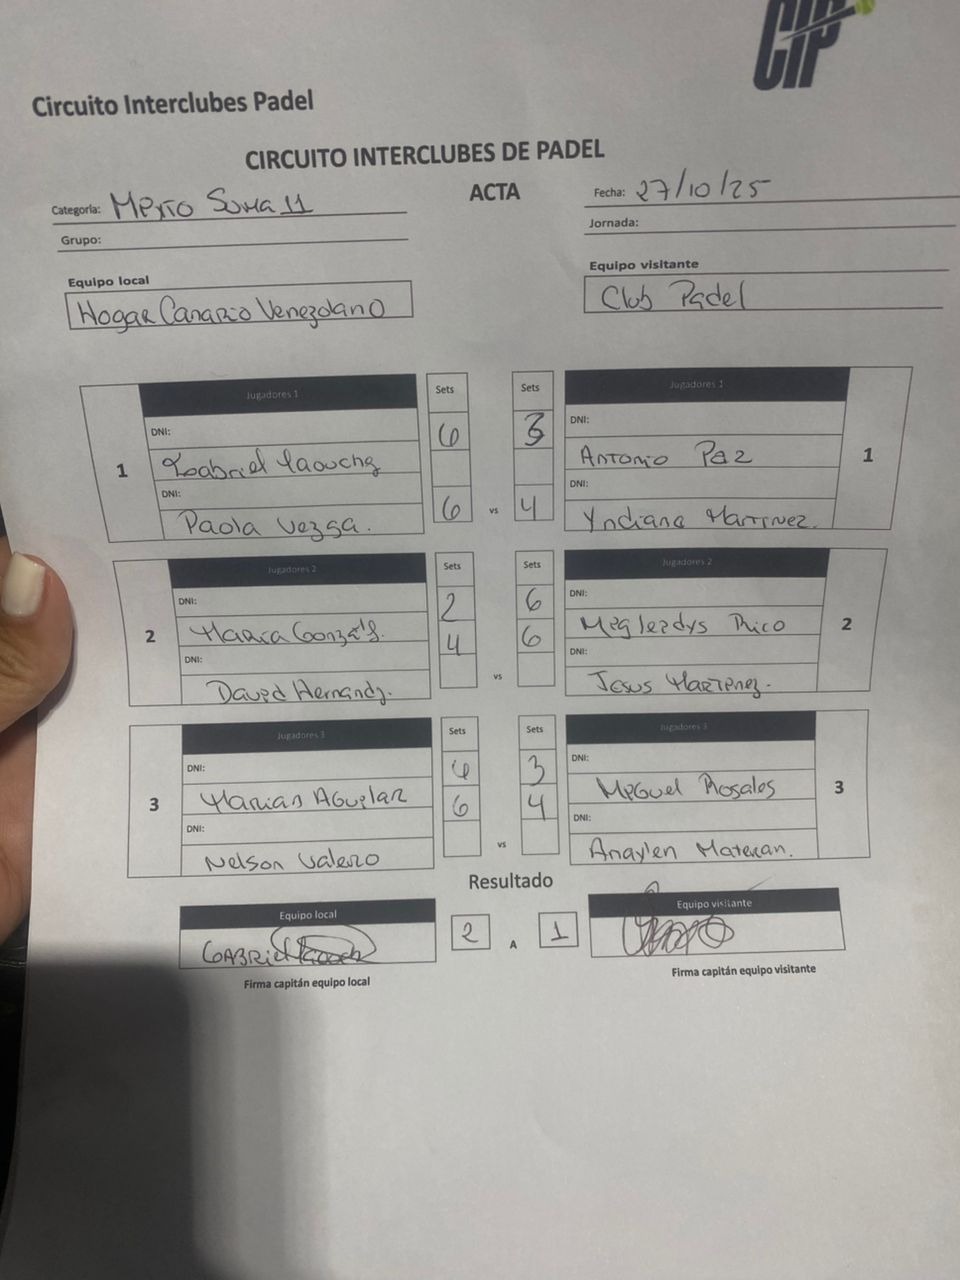 CIP
Circuito Interclubes Padel
CIRCUITO INTERCLUBES DE PADEL
ACTA
Categoria: Mixto Suma 11
Fecha: 27/10/25
Grupo:
Jornada:
Equipo local
Equipo visitante
Hogar Canario Venezolano
Club Padel
Jugadores 1 Sets Sets Jugadores 1
DNI: 6 3 DNI:
1 Gabriel Antonio Paz 1
DNI: DNI:
Paola 6 vs 4 Yndiana Martinez.
Jugadores 2 Sets Sets Jugadores 2
DNI: 2 6 DNI:
2 Maria Rico 2
DNI: 4 6 DNI:
David vs Jesus Martinez.
Jugadores 3 Sets Sets Jugadores 3
DNI: 3 DNI:
3 Marian Aguilar 6 4 Miguel Rosales 3
DNI: DNI:
Nelson Valero vs Anaylen Materan.
Resultado
Equipo local Equipo visitante
GABRIEL 2 A 1
Firma capitán equipo local Firma capitán equipo visitante